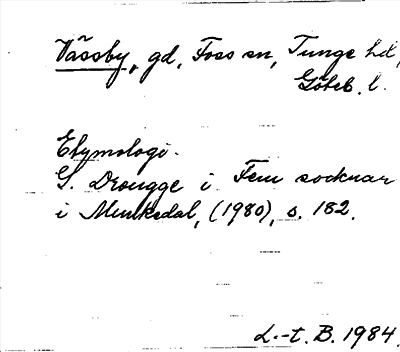 Vässby, gd, Foss sn, Tunge hd,
Göteb. l.
Etymologi.
G. Drougge i Fem socknar
i Munkedal, (1980), s. 182.
L.-t. B. 1984.